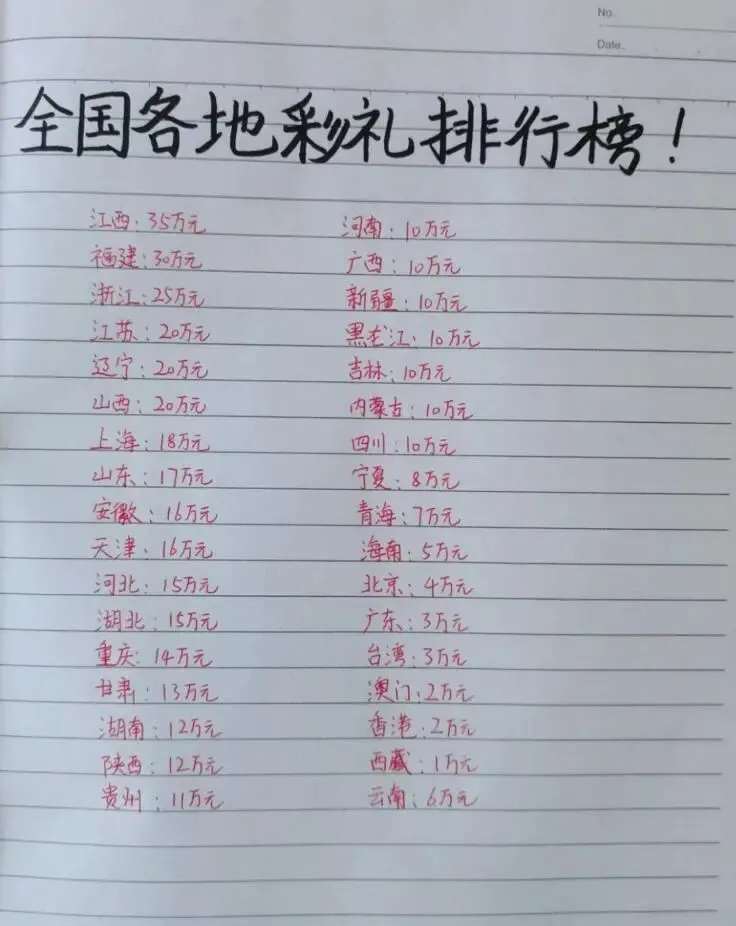 No.
Date.
全国各地彩礼排行榜!
江西:35万元
福建:30万元
浙江:25万元
江苏:20万元
辽宁:20万元
山西:20万元
上海:18万元
山东:17万元
安徽:16万元
天津:16万元
河北:15万元
湖北:15万元
重庆:14万元
甘肃:13万元
湖南:12万元
陕西:12万元
贵州:11万元
河南:10万元
广西:10万元
新疆:10万元
黑龙江:10万元
吉林:10万元
内蒙古:10万元
四川:10万元
宁夏:8万元
青海:7万元
海南:5万元
北京:4万元
广东:3万元
台湾:3万元
澳门:2万元
香港:2万元
西藏:1万元
云南:6万元